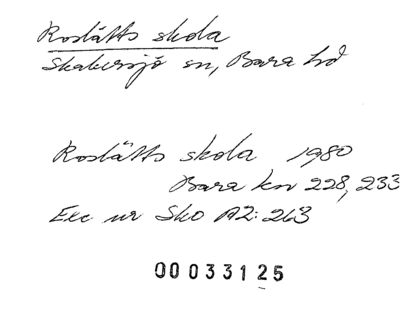 Roslätts skola
Skabersjö sn, Bara hd
Roslätts skola 1980
Bara kn 228, 233
Exc nr Sko A2:263
00033125